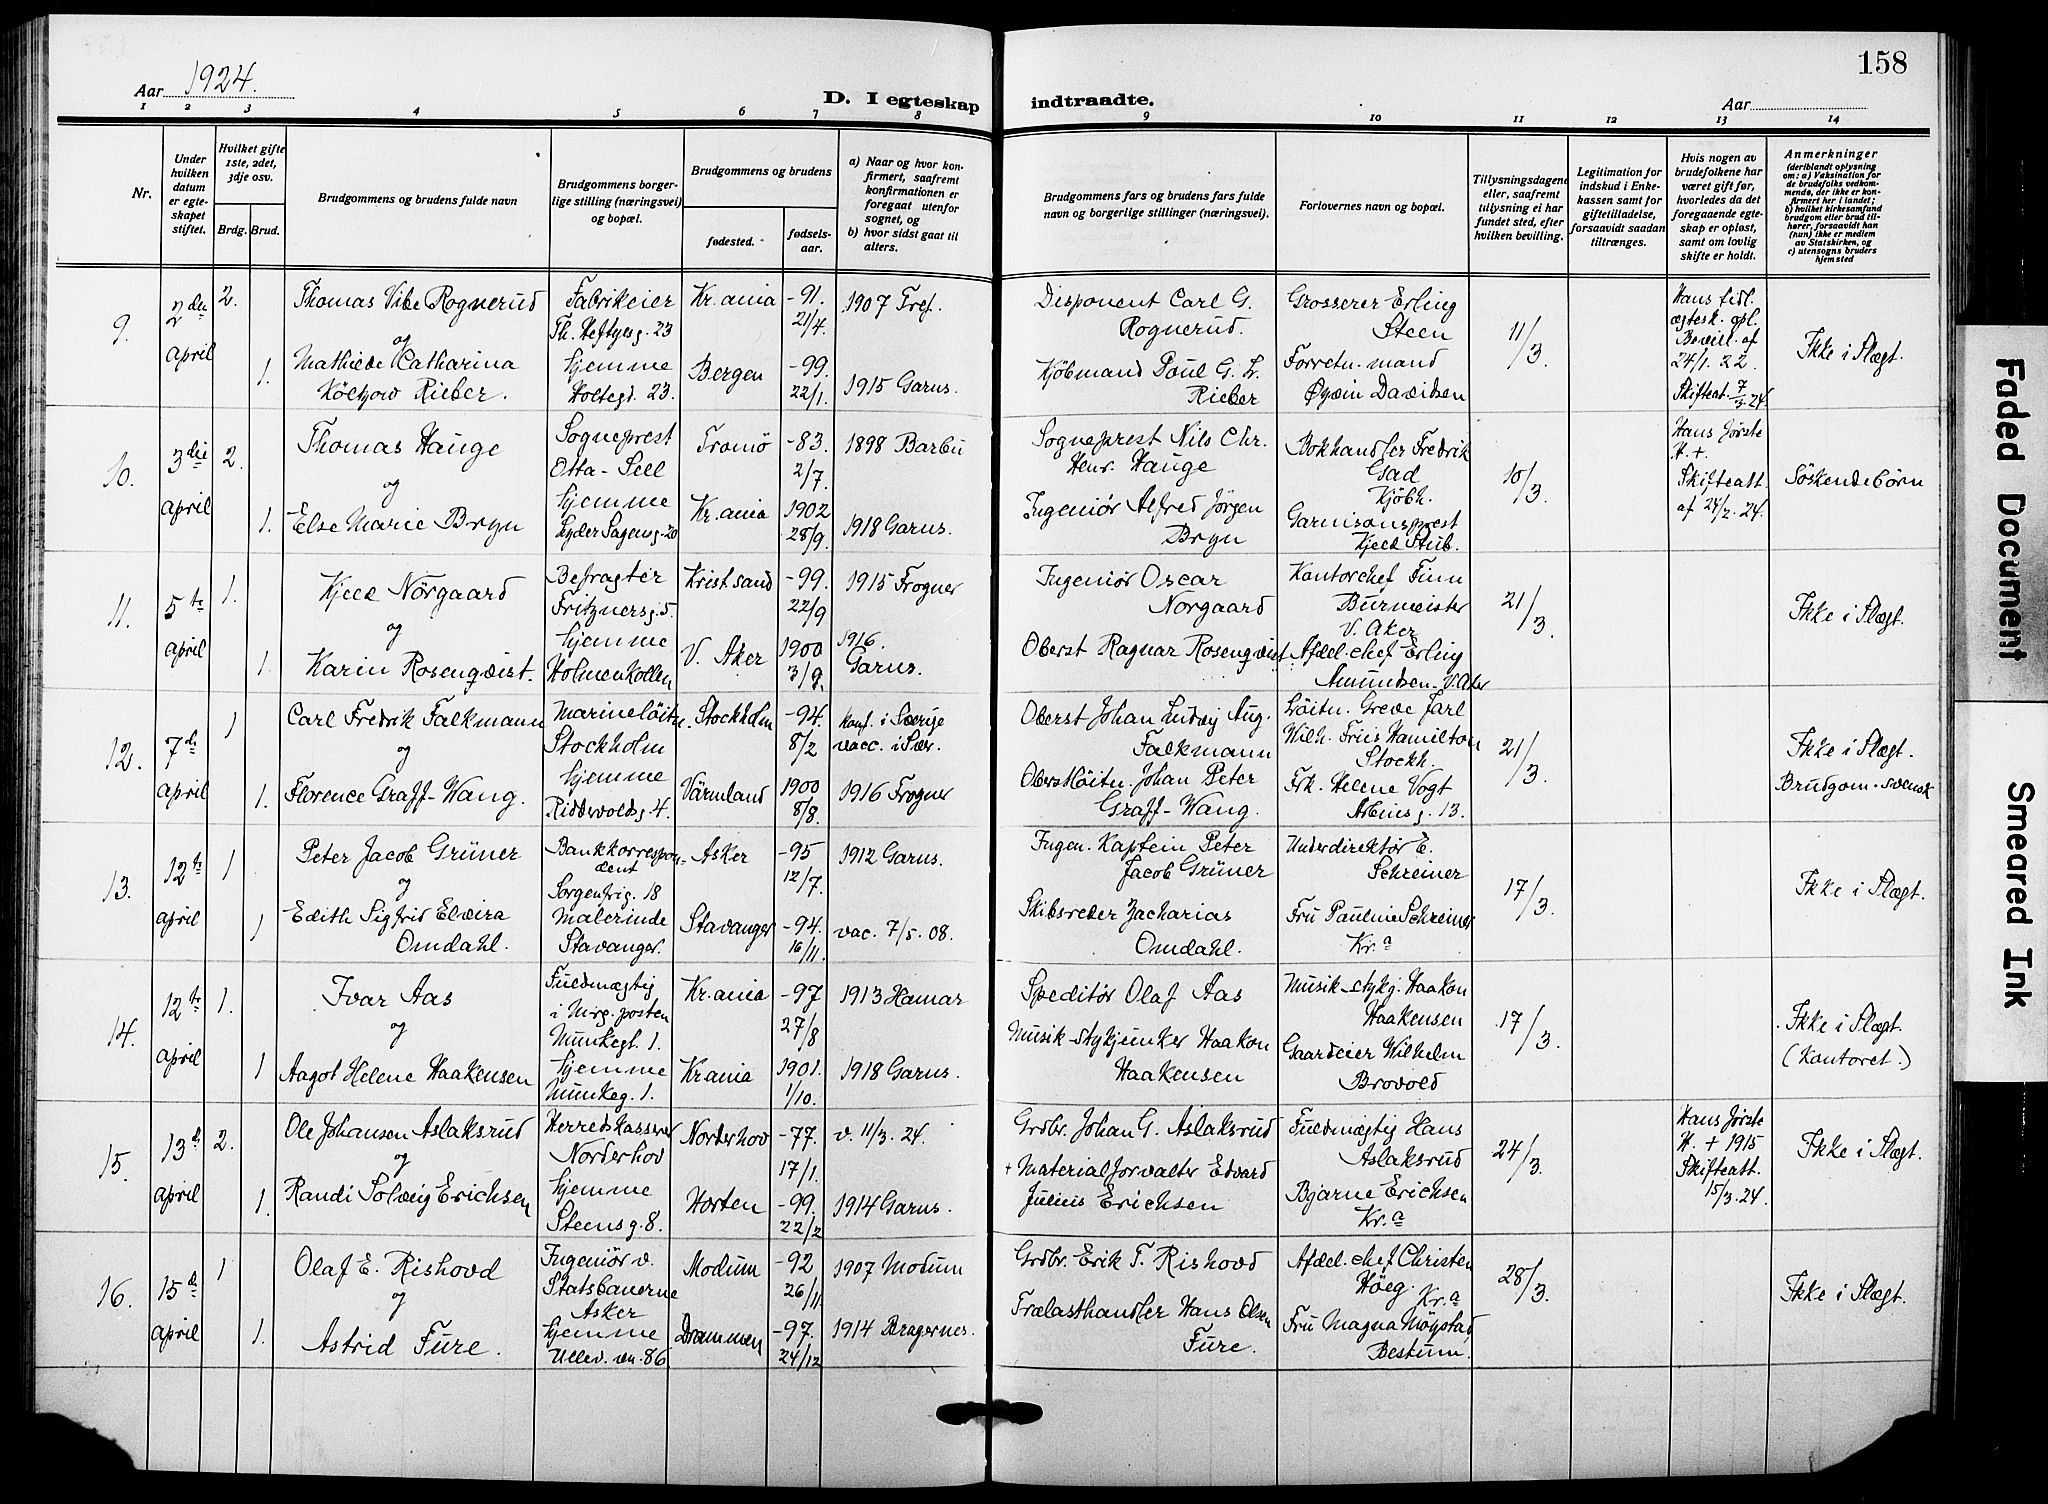 Aar 1924.
D. I egteskap indtraadte.
Aar
158
1 2 3 4 5 6 7 8 9 10 11 12 13 14
Nr.
Under hvilken datum er egteskapet stiftet.
Hvilket gifte 1ste, 2det, 3dje osv.
Brdg. Brud.
Brudgommens og brudens fulde navn
Brudgommens borgerlige stilling (næringsvei) og bopæl.
Brudgommens og brudens
fødested.
fødselsaar.
a) Naar og hvor konfirmert, saafremt konfirmationen er foregaat utenfor sognet, og
b) hvor sidst gaat til alters.
Brudgommens fars og brudens fars fulde navn og borgerlige stillinger (næringsvei).
Forlovernes navn og bopæl.
Tillysningsdagene eller, saafremt tillysning ei har fundet sted, efter hvilken bevilling.
Legitimation for indskud i Enkekassen samt for giftetilladelse, forsaavidt saadan tiltrænges.
Hvis nogen av brudefolkene har været gift før, hvorledes da det foregaaende egteskap er opløst, samt om lovlig skifte er holdt.
Anmerkninger
(deriblandt oplysning om: a) Vaksination for de brudefolks vedkommende, der ikke er konfirmert her i landet; b) hvilket kirkesamfund brudgom eller brud tilhører, forsaavidt han (hun) ikke er medlem av Statskirken, og c) utensogns bruders hjemsted
9.
2den april
2.
1.
Thomas Vibe Rognerud
og
Mathilde Catharina
Költzow Rieber.
Fabrikeier
Th. Heftyesg. 23
hjemme
Holtegd. 23.
Kr.ania
Bergen
-91.
21/4.
-99.
22/1.
1907 Tref.
1915 Garns.
Disponent Carl G.
Rognerud.
Kjöbmand Poul G. L.
Rieber
Grosserer Erling
Steen
Forretn. mand
Øyvin Davidsen
11/3
Hans tidl.
ægtesk. opl.
Bevill. af
24/1. 22.
Skifteat. 7/3. 24.
Ikke i Slægt.
10.
3die april
2.
1.
Thomas Hauge
og
Else Marie Bryn
Sogneprest
Otta-Sell
hjemme
Lyder Sagensg. 20
Tromö
Kr.ania
-83.
2/7.
1902
28/9.
1898 Barbu
1918 Garns.
Sogneprest Nils Chr.
Henr. Hauge
Ingeniör Alfred Jörgen
Bryn
Bokhandler Fredrik
Gad
Kjöbh.
Garnisonsprest
Kjeld Stub.
10/3.
Hans förste
H. +.
Skifteatt.
af 24/2. 24.
Söskendebörn
11.
5te april
1.
1.
Kjell Nörgaard
og
Karin Rosenqvist.
Befragter
Fritznersg. 5.
hjemme
Holmenkollen
Krist.sand
V. Aker
-99.
22/9
1900
3/9.
1915 Frogner
1916.
Garns.
Ingeniör Oscar
Nörgaard
Oberst Ragnar Rosenqvist
Kontorchef Finn
Burmeister
V. Aker
Afdel. chef Erling
Amundsen. V. Aker
21/3.
Ikke i Slægt.
12.
7de april
1
1.
Carl Fredrik Falkmann
og
Florence Graff-Wang.
Marinelöitn.
Stockholm
hjemme
Riddervoldsg. 4.
Stockholm
Värmland
-94.
8/2
1900
8/8.
konf. i Sverige
vacc. i Sver.
1916 Frogner
Oberst Johan Ludvig Aug.
Falkmann
Oberstlöitn. Johan Peter
Graff-Wang.
Löitn. Greve Jarl
Wilh. Friis Hamilton
Stockh.
Frk. Helene Vogt
Arbiens g. 13.
21/3.
Ikke i Slægt.
Brudgom. svensk
13.
12te april
1
1
Peter Jacob Grüner
og
Edith Sigfrid Elvira
Omdahl.
Bankkorrespondent
Sorgenfrig. 18
Malerinde
Stavanger.
Asker
Stavanger
-95
12/7.
-94.
16/11.
1912 Garns.
vac. 7/5. 08.
Ingen. Kaptein Peter
Jacob Grüner
Skibsreder Zacharias
Omdahl.
Underdirektör E.
Schreiner
Fru Pauline Schreiner
Kr.a
17/3.
Ikke i Slægt.
14.
12te april
1.
1
Ivar Aas
og
Aagot Helene Haakensen
Fuldmægtig
i Mrg.posten
Munkegt. 1.
hjemme
Munkeg. 1.
Kr.ania
Kr.ania
-97
27/8
1901.
1/10.
1913 Hamar
1918 Garns.
Speditör Olaf Aas
Musik-stykjunker Haakon
Haakensen
Musik-stykj. Haakon
Haakensen
Gaardeier Wilhelm
Brovold
17/3.
Ikke i Slægt.
(Kontoret.)
15.
13de april
2.
1.
Ole Johansen Aslaksrud
og
Randi Solveig Erichsen
Herredskasserer
Norderhov
hjemme
Steensg. 8.
Norderhov
Horten
-77.
17/1.
-99.
22/2
v. 11/3. 24.
1914 Garns.
Grdbr. Johan G. Aslaksrud
+ Materialforvalter Edvard
Julius Erichsen
Fuldmægtig Hans
Aslaksrud
Bjarne Erichsen
Kr.a
24/3.
Hans förste
H. + 1915
Skifteatt.
15/3. 24.
Ikke i Slægt.
16.
15de april
1
1.
Olaf E. Rishovd
og
Astrid Fure.
Ingeniör v.
Statsbanerne
Asker
hjemme
Ullev. vn. 86
Modum
Drammen
-92
26/11
-97.
24/12
1907 Modum
1914 Bragernes.
Grdbr. Erik T. Rishovd
Trælasthandler Hans Olsen
Fure.
Afdel. chef Christen
Höeg. Kr.a
Fru Magna Möystad
Bestum.
28/3.
Ikke i Slægt.
Faded Document
Smeared Ink